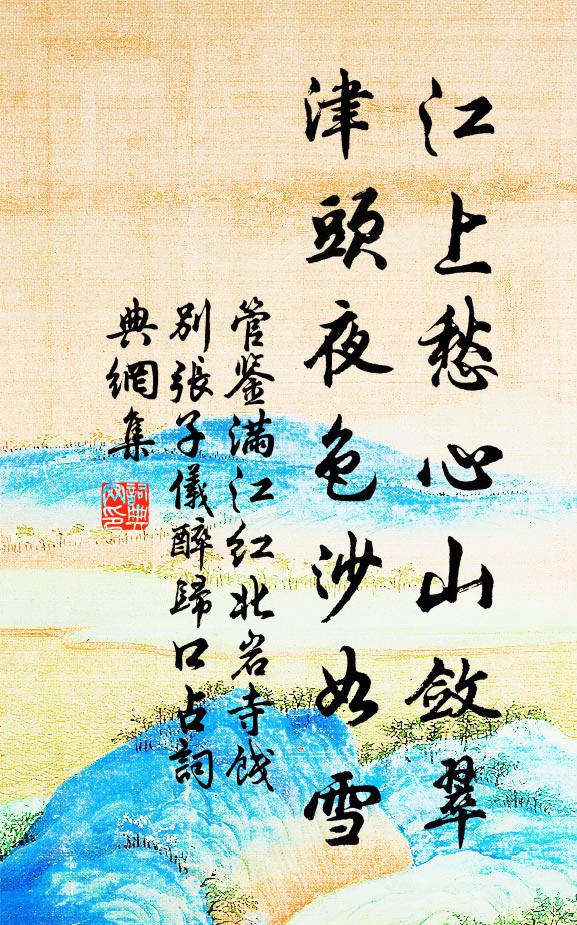 江上愁心山斂翠
津頭夜色沙如雪
管鉴滿江红北岩寺饯
别張子儀醉歸口占詞
典網集
詞典網印